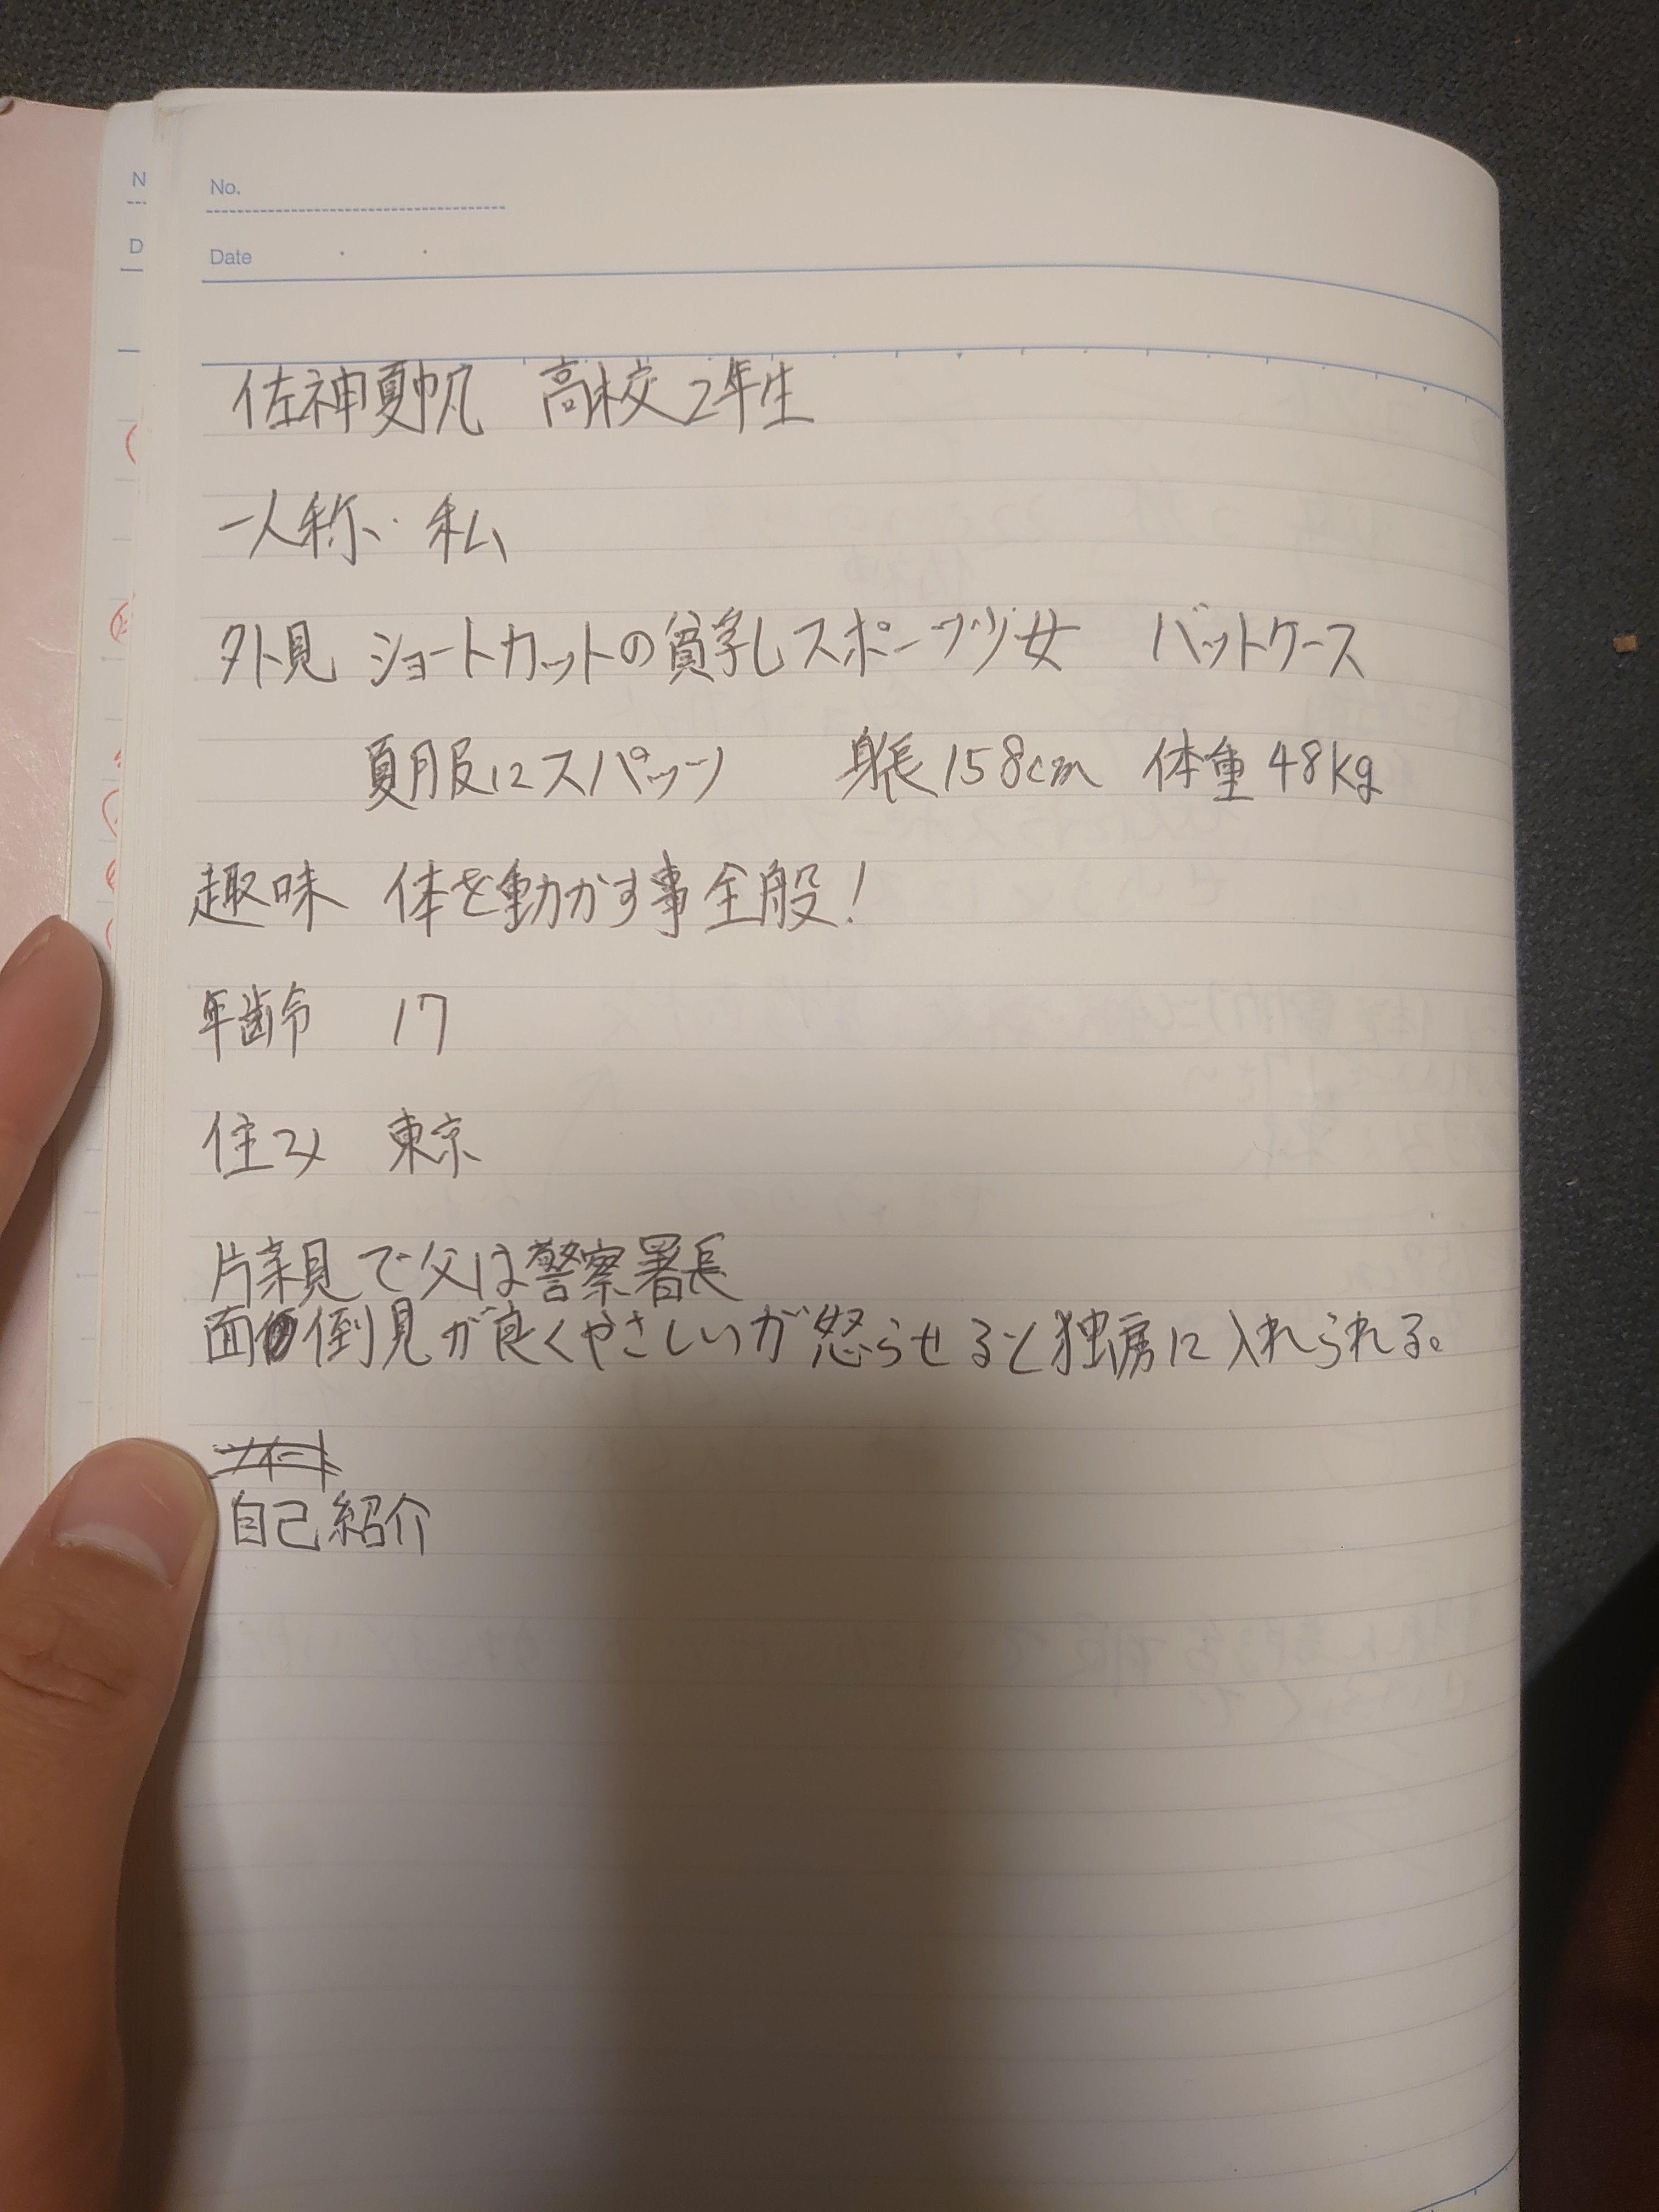 No.
Date
佐神夏帆 高校2年生
一人称 私
外見 ショートカットの貧乳スポーツ少女 バットケース
夏服にスパッツ 身長158cm 体重48kg
趣味 体を動かす事全般!
年齢 17
住み 東京
片親で父は警察署長
面倒見が良くやさしいが怒らせると独房に入れられる。
自己紹介